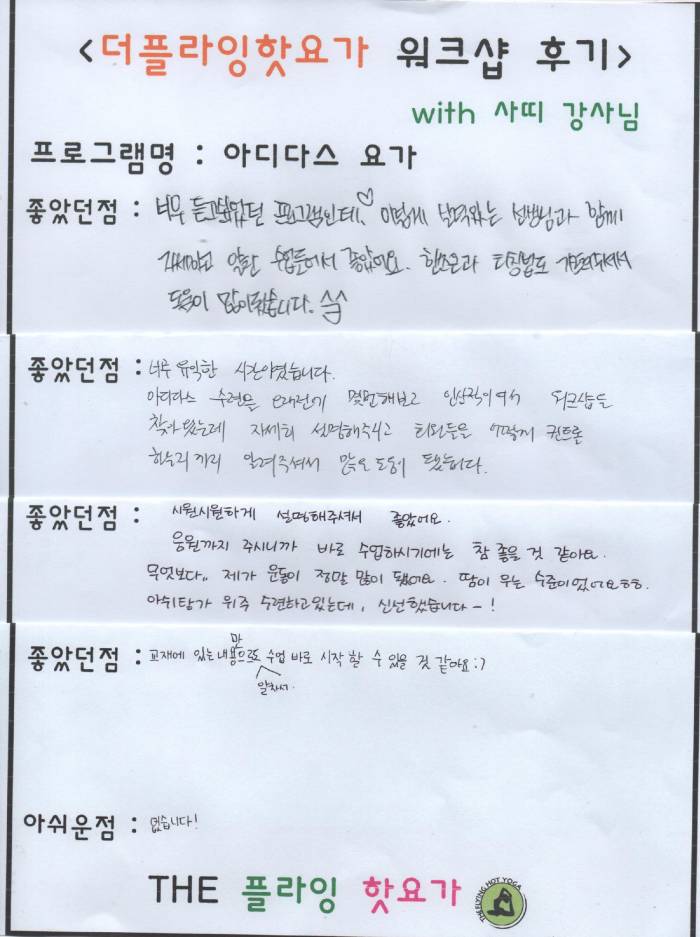 <더플라잉핫요가 워크샵 후기>
with 사띠 강사님
프로그램명 : 아디다스 요가
좋았던점 : 너무 듣고싶었던 프로그램인데♡ 이렇게 선생님과 함께
수업들어서 좋았어요. 핸즈온과 티칭법도
도움이 많이됐습니다.
좋았던점 : 너무 유익한 시간이었습니다.
아디다스 수련은 오래전에 몇번해보고 인상적이여서 워크샵을
찾아 왔는데 자세히 설명해주시고 회원들을 어떻게 컨트롤
하는지까지 알려주셔서 많은 도움이 됐습니다.
좋았던점 : 시원시원하게 설명해주셔서 좋았어요.
음원까지 주시니까 바로 수업하시기에는 참 좋을 것 같아요.
무엇보다.. 제가 운동이 정말 많이 됐어요. 땀이 우는 수준이었어요ㅎㅎ.
아쉬탕가 위주 수련하고있는데, 신선했습니다-!
좋았던점 : 교재에 있는 내용만으로도 알차서 수업 바로 시작 할 수 있을 것 같아요:)
아쉬운점 : 없습니다!
THE 플라잉 핫요가
THE FLYING HOT YOGA